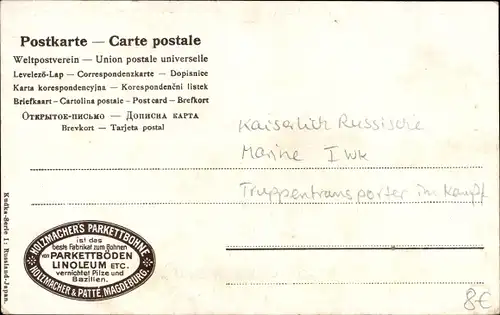 Postkarte — Carte postale
Weltpostverein — Union postale universelle
Levelező-Lap — Correspondenzkarte — Dopisnice
Karta korespondencyjna — Korespondenčni listek
Briefkaart — Cartolina postale — Post card — Brefkort
Открытое-письмо — Дописна карта
Brevkort — Tarjeta postal
Kaiserlich Russische
Marine I WK
Truppentransporter im Kampf
Kuška-Serie I: Russland-Japan.
HOLZMACHERS PARKETTBOHNE
ist das
beste Fabrikat zum Bohnen
von PARKETTBÖDEN
LINOLEUM ETC.
vernichtet Pilze und
Bazillen.
HOLZMACHER & PATTÉ, MAGDEBURG.
8€